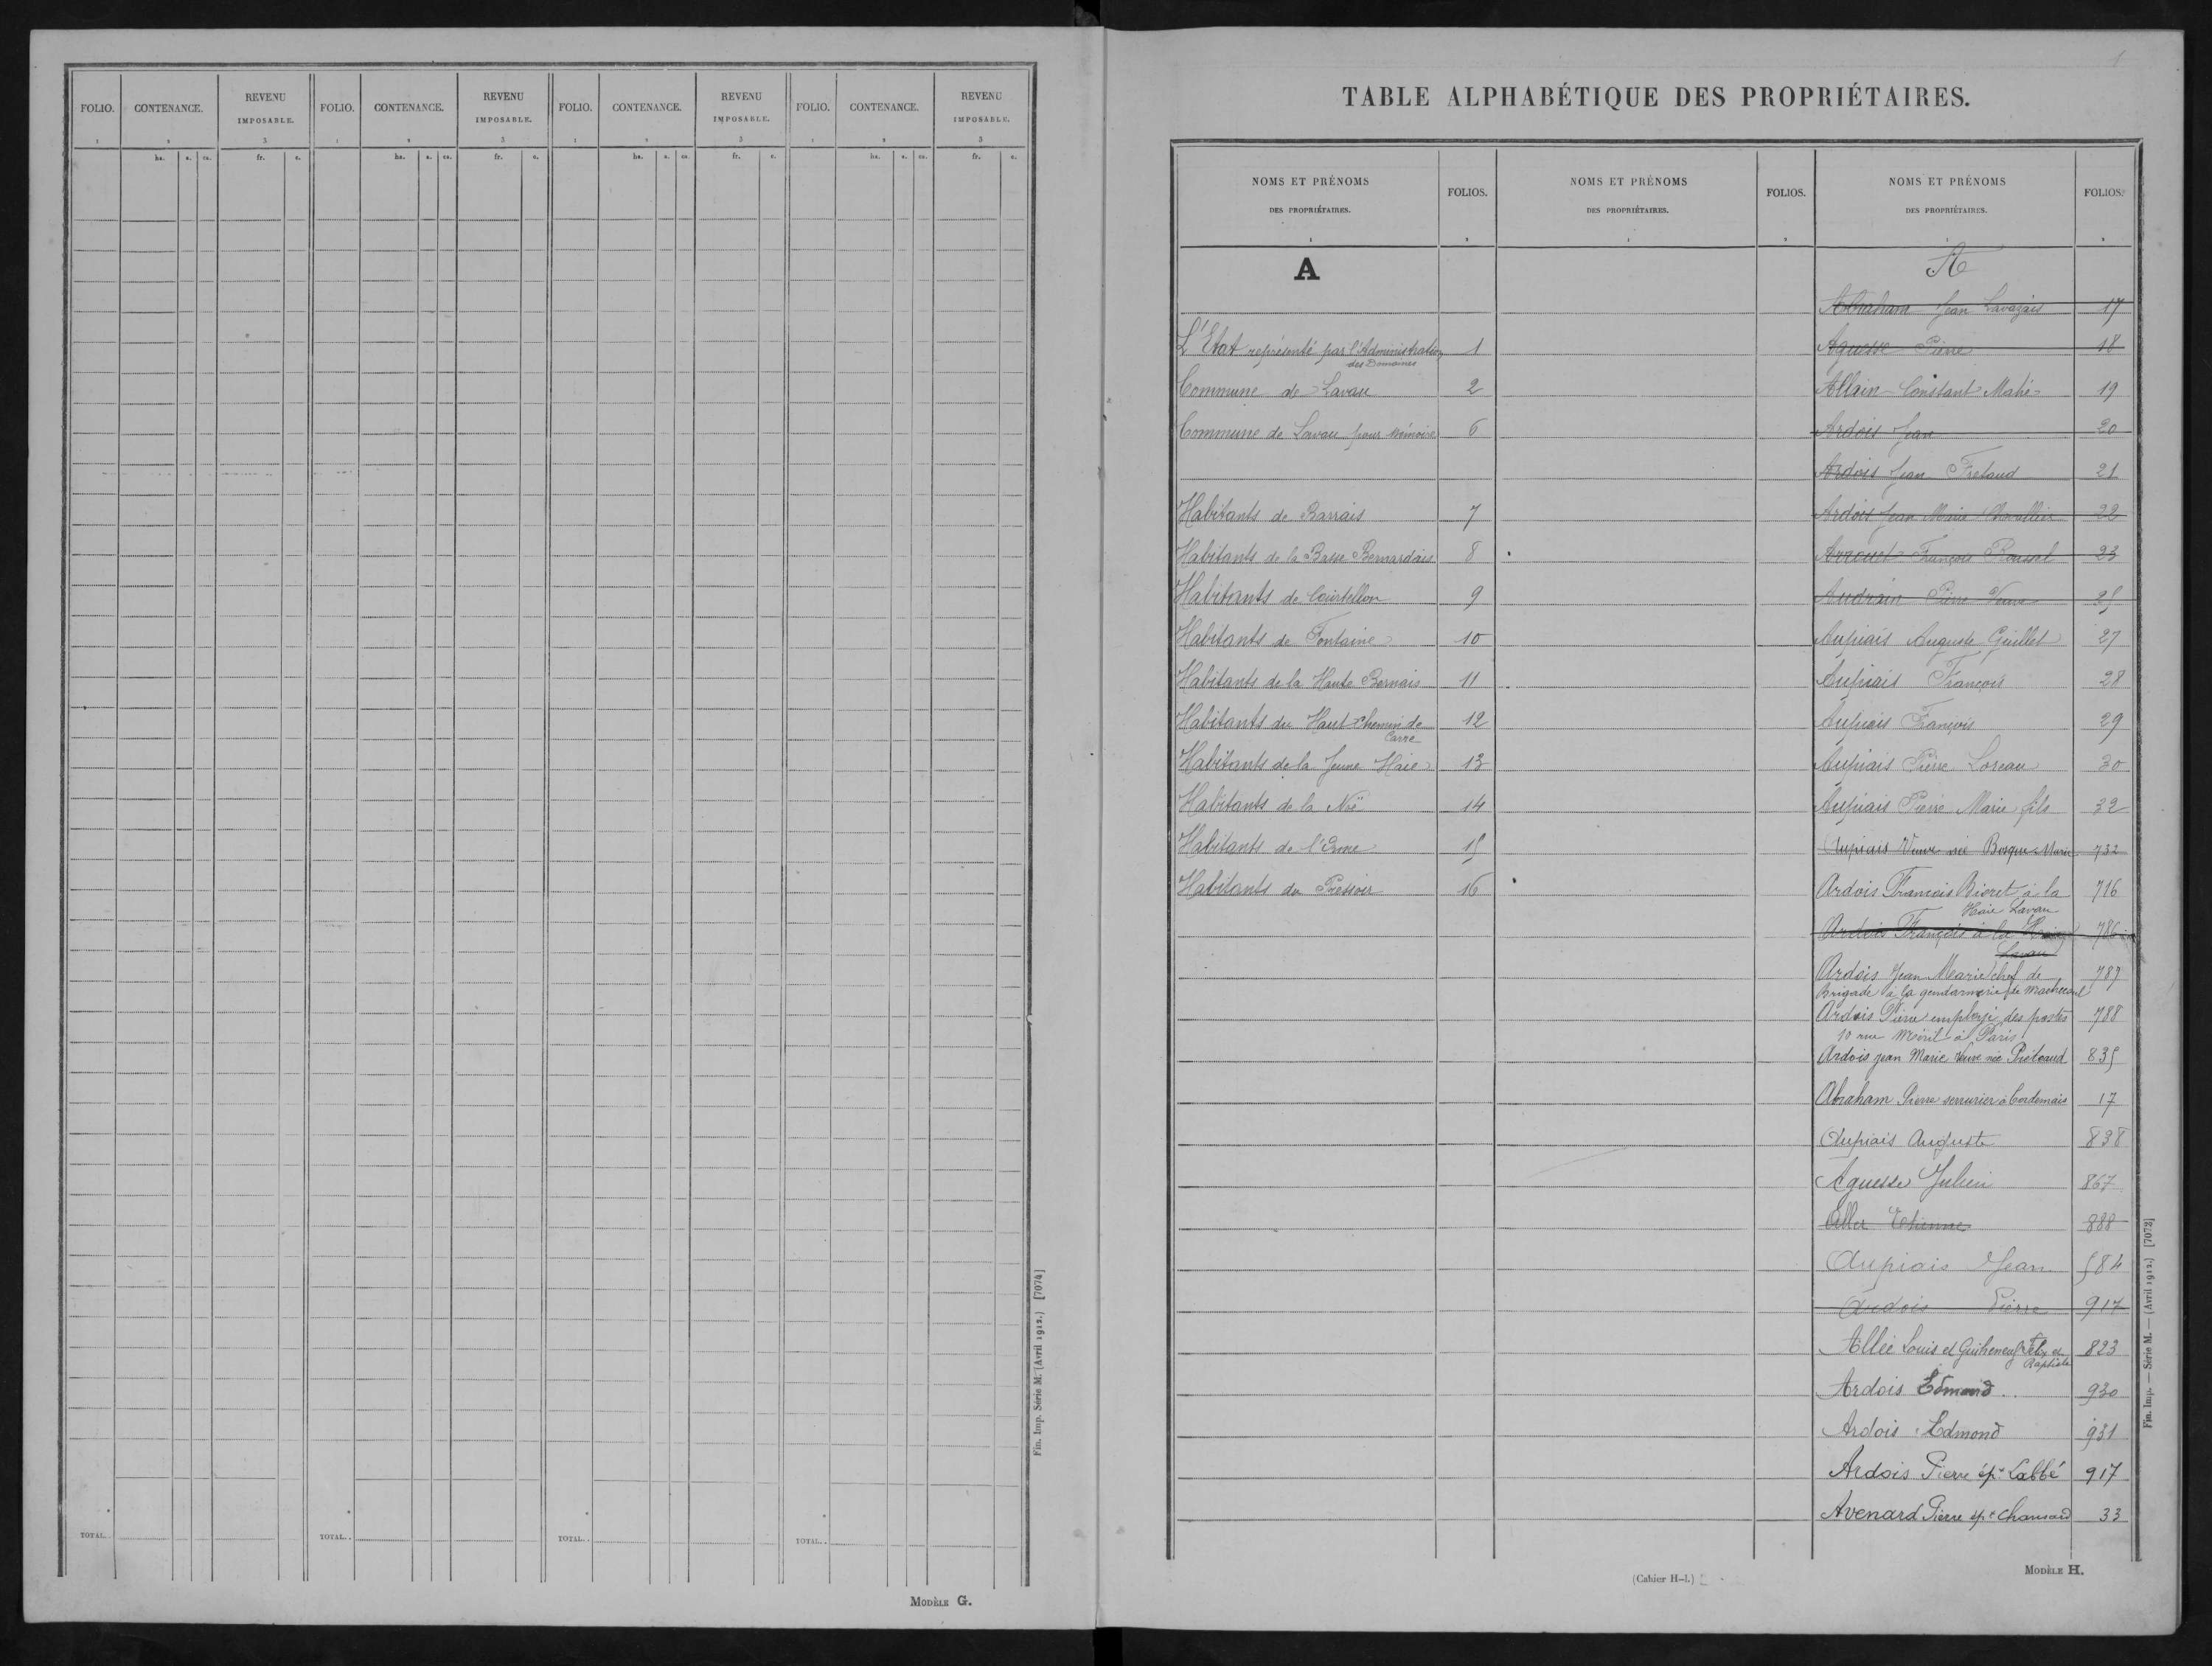 FOLIO. CONTENANCE. REVENU IMPOSABLE. FOLIO. CONTENANCE. REVENU IMPOSABLE. FOLIO. CONTENANCE. REVENU IMPOSABLE. FOLIO. CONTENANCE. REVENU IMPOSABLE.
1 2 3 1 2 3 1 2 3 1 2 3
ha. a. ca. fr. c. ha. a. ca. fr. c. ha. a. ca. fr. c. ha. a. ca. fr. c.
TOTAL.. TOTAL.. TOTAL.. TOTAL..
Fin. Imp. Série M. (Avril 1912.) [7074]
MODÈLE G.
1
TABLE ALPHABÉTIQUE DES PROPRIÉTAIRES.
NOMS ET PRÉNOMS DES PROPRIÉTAIRES. FOLIOS. NOMS ET PRÉNOMS DES PROPRIÉTAIRES. FOLIOS. NOMS ET PRÉNOMS DES PROPRIÉTAIRES. FOLIOS.
1 2 1 2 1 2
A
L'Etat représenté par l'Administration 1
des Domaines
Commune de Lavau 2
Commune de Lavau pour mémoire 6
Habitants de Barrais 7
Habitants de la Basse Bernardais 8
Habitants de Courtellon 9
Habitants de Fontaine 10
Habitants de la Haute Bernais 11
Habitants du Haut chemin de 12
Carre
Habitants de la Jeune Haie 13
Habitants de la Noë 14
Habitants de l'Orme 15
Habitants du Pressoir 16
A
Abraham Jean Lavazais 17
Aguesse Pierre 18
Allain Constant Mahé 19
Ardois Jean 20
Ardois Jean Fretaud 21
Ardois Jean Marie Chevallier 22
François Roussel 23
Audrain Pierre Veuve 25
Aupiais Auguste Guillet 27
Aupiais François 28
Aupiais François 29
Aupiais Pierre Loreau 30
Aupiais Pierre Marie fils 32
Aupiais Veuve née Marie 732
Ardois François Bioret à la 716
Haie Lavau
Ardois François à la 786
Lavau
Ardois Jean Marie chef de 787
Brigade à la gendarmerie de Machecoul
Ardois Pierre employé des postes 788
10 rue à Paris
Ardois jean Marie veuve née 835
Abraham Pierre serrurier à Cordemais 17
Aupiais Auguste 838
Aguesse Julien 867
Etienne 888
Aupiais Jean 584
Ardois Pierre 917
Allée Louis et Guiheneuf Félix et 823
Baptiste
Ardois Edmond 930
Ardois Edmond 931
Ardois Pierre ép. Labbé 917
Avenard Pierre ép. 33
Fin. Imp. — Série M. — (Avril 1912.) [7072]
(Cahier H-1.)
MODÈLE H.